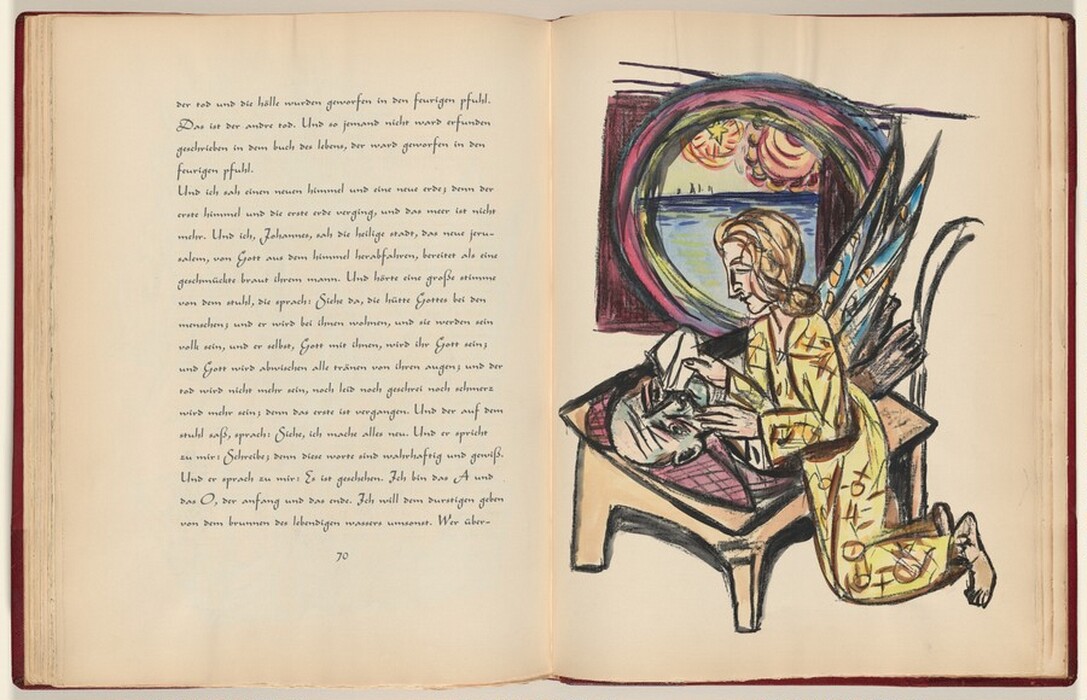 der tod und die hölle wurden geworfen in den feurigen pfuhl.
Das ist der andre tod. Und so jemand nicht ward erfunden
geschrieben in dem buch des lebens, der ward geworfen in den
feurigen pfuhl.
Und ich sah einen neuen himmel und eine neue erde; denn der
erste himmel und die erste erde verging, und das meer ist nicht
mehr. Und ich, Johannes, sah die heilige stadt, das neue jeru-
salem, von Gott aus dem himmel herabfahren, bereitet als eine
geschmückte braut ihrem mann. Und hörte eine große stimme
von dem stuhl, die sprach: Siehe da, die hütte Gottes bei den
menschen; und er wird bei ihnen wohnen, und sie werden sein
volk sein, und er selbst, Gott mit ihnen, wird ihr Gott sein;
und Gott wird abwischen alle tränen von ihren augen; und der
tod wird nicht mehr sein, noch leid noch geschrei noch schmerz
wird mehr sein; denn das erste ist vergangen. Und der auf dem
stuhl saß, sprach: Siehe, ich mache alles neu. Und er spricht
zu mir: Schreibe; denn diese worte sind wahrhaftig und gewiß.
Und er sprach zu mir: Es ist geschehen. Ich bin das A und
das O, der anfang und das ende. Ich will dem durstigen geben
von dem brunnen des lebendigen wassers umsonst. Wer über-
70